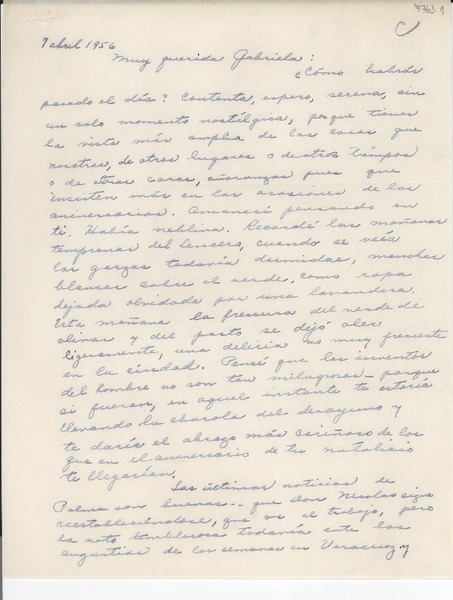 47631
7 abril 1956
Muy querida Gabriela:
¿Cómo habrás
pasado el día? Contenta, espero, serena, sin
un solo momento nostálgico, porque tienes
la vista más amplia de las cosas que
nosotras, de otros lugares o de otros tiempos
o de otras caras, añoranzas pues que
insisten más en las ocasiones de los
aniversarios. Amanecí pensando en
ti. Había neblina. Recordé las mañanas
tempranas del Lencero, cuando se veía
las garzas todavía dormidas, manchas
blancas sobre el verde, como ropa
dejada olvidada por una lavandera.
Esta mañana la frescura del verde de
olivar y del pasto se dejó oler
ligeramente, una delicia no muy frecuente
en la ciudad. Pensé que los inventos
del hombre no son tan milagrosos - porque
si fueran, en aquel instante te estaría
llevando la charola del desayuno y
te daría el abrazo más cariñoso de los
que en el aniversario de tu natalicio
te llegarían.
Las últimas noticias de
Palma son buenas... que don Nicolás sigue
reestableciéndose, que va al trabajo, pero
la noto temblorosa todavía ante las
angustias de las semanas en Veracruz y